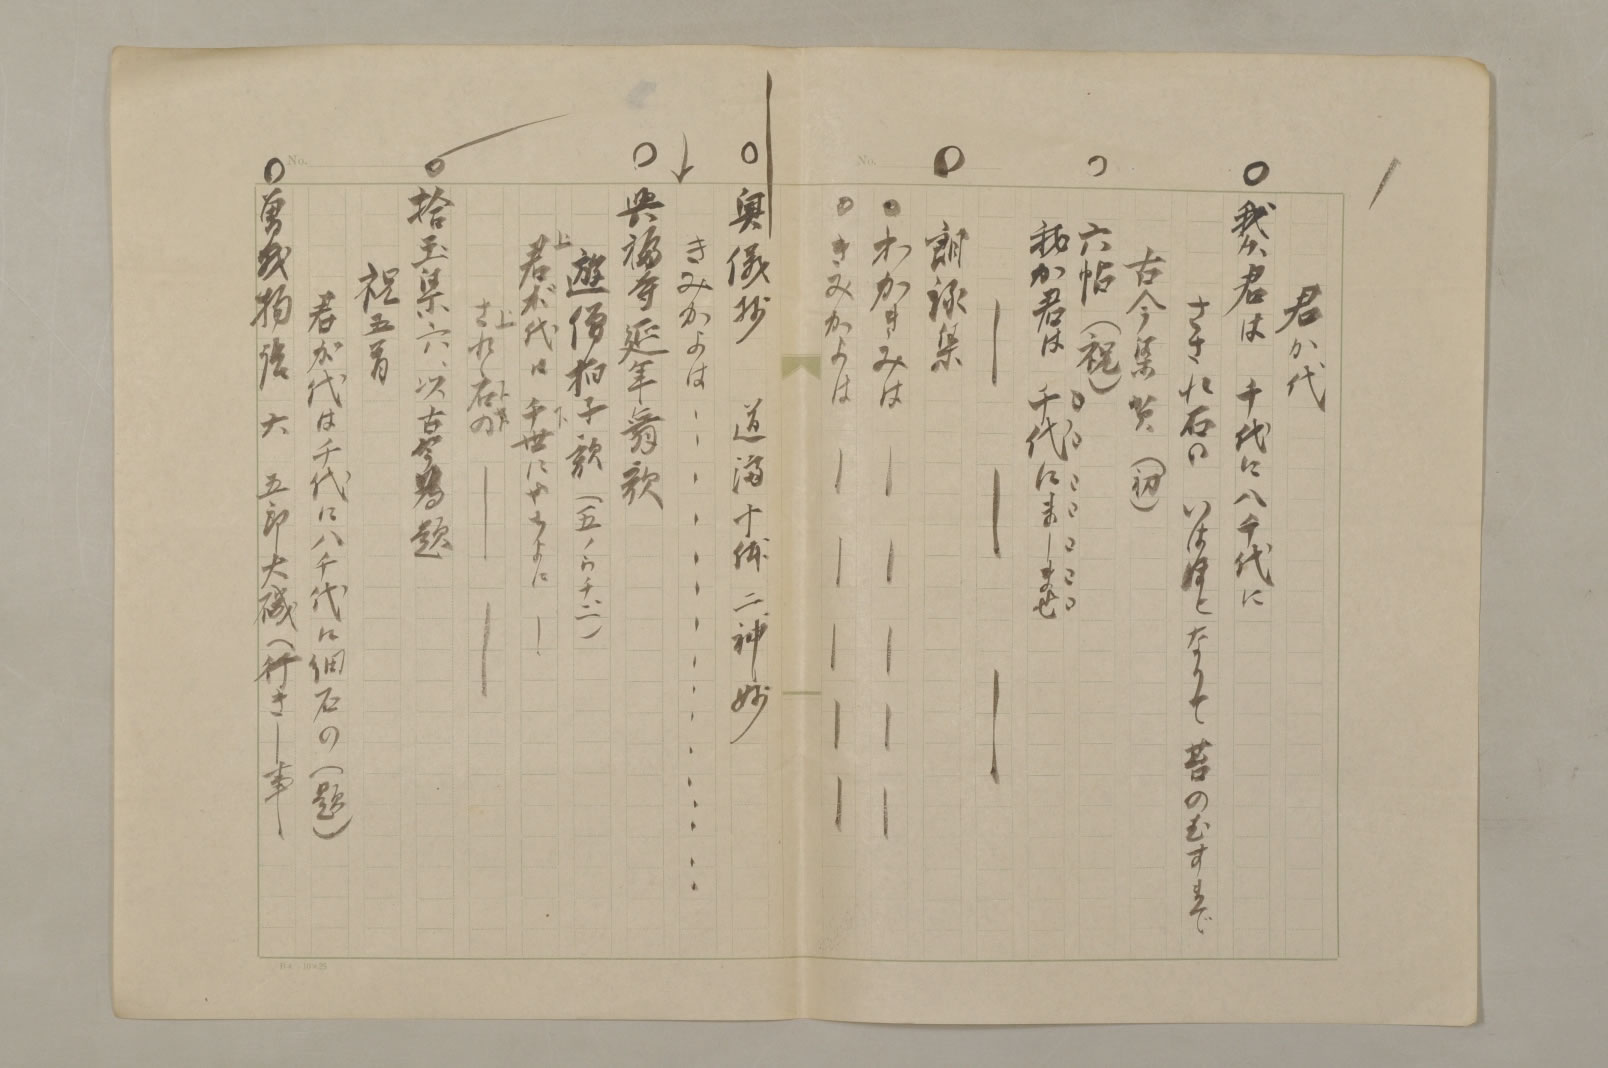 君か代
我か君は 千代に八千代に
さゝれ石の いはほと なりて 苔のむすまで
古今集 賀 (初)
六帖 (祝)
我か君は 千代にましませ
朗詠集
わかきみは
きみかよは
奥儀抄 道済十体 二、神妙
きみかよは
興福寺延年舞歌
遊僧拍子歌
君が代は 千世にやちよに
上
下
されゝ石の
上
拾玉集 六、以古今為題
祝五首
君が代は千代に八千代に細石の (題)
曽我物語 六 五郎大磯 (行きし事)
No.
No.